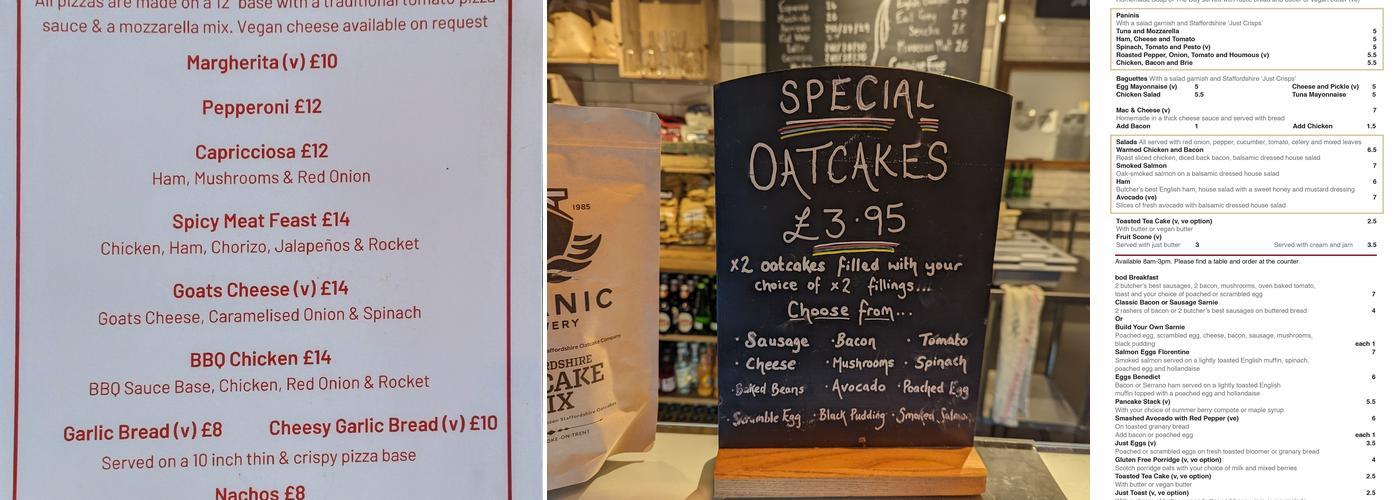 All pizzas are made on a 12" base with a traditional tomato pizza
sauce & a mozzarella mix. Vegan cheese available on request
Margherita (v) £10
Pepperoni £12
Capricciosa £12
Ham, Mushrooms & Red Onion
Spicy Meat Feast £14
Chicken, Ham, Chorizo, Jalapeños & Rocket
Goats Cheese (v) £14
Goats Cheese, Caramelised Onion & Spinach
BBQ Chicken £14
BBQ Sauce Base, Chicken, Red Onion & Rocket
Garlic Bread (v) £8 Cheesy Garlic Bread (v) £10
Served on a 10 inch thin & crispy pizza base
Nachos £8
1985
NIC
ERY
Staffordshire Oatcake Company
RDSHIRE
CAKE
IX
Staffordshire Oatcakes
KE-ON-TRENT
SPECIAL
OATCAKES
£3.95
x2 oatcakes filled with your
choice of x2 fillings...
Choose from...
· Sausage · Bacon · Tomato
· Cheese · Mushrooms · Spinach
· Baked Beans · Avocado · Poached Egg
· Scramble Egg · Black Pudding · Smoked Salmon
Paninis
With a salad garnish and Staffordshire 'Just Crisps'
Tuna and Mozzarella 5
Ham, Cheese and Tomato 5
Spinach, Tomato and Pesto (v) 5
Roasted Pepper, Onion, Tomato and Houmous (v) 5.5
Chicken, Bacon and Brie 5.5
Baguettes With a salad garnish and Staffordshire 'Just Crisps'
Egg Mayonnaise (v) 5 Cheese and Pickle (v) 5
Chicken Salad 5.5 Tuna Mayonnaise 5
Mac & Cheese (v) 7
Homemade in a thick cheese sauce and served with bread
Add Bacon 1 Add Chicken 1.5
Salads All served with red onion, pepper, cucumber, tomato, celery and mixed leaves
Warmed Chicken and Bacon 6.5
Roast sliced chicken, diced back bacon, balsamic dressed house salad
Smoked Salmon 7
Oak-smoked salmon on a balsamic dressed house salad
Ham 6
Butcher's best English ham, house salad with a sweet honey and mustard dressing
Avocado (ve) 7
Slices of fresh avocado with balsamic dressed house salad
Toasted Tea Cake (v, ve option) 2.5
With butter or vegan butter
Fruit Scone (v)
Served with just butter 3 Served with cream and jam 3.5
Available 8am-3pm. Please find a table and order at the counter
bod Breakfast
2 butcher's best sausages, 2 bacon, mushrooms, oven baked tomato,
toast and your choice of poached or scrambled egg 7
Classic Bacon or Sausage Sarnie
2 rashers of bacon or 2 butcher's best sausages on buttered bread 4
Or
Build Your Own Sarnie
Poached egg, scrambled egg, cheese, bacon, sausage, mushrooms,
black pudding each 1
Salmon Eggs Florentine 7
Smoked salmon served on a lightly toasted English muffin, spinach,
poached egg and hollandaise
Eggs Benedict 6
Bacon or Serrano ham served on a lightly toasted English
muffin topped with a poached egg and hollandaise
Pancake Stack (v) 5.5
With your choice of summer berry compote or maple syrup
Smashed Avocado with Red Pepper (ve) 6
On toasted granary bread
Add bacon or poached egg each 1
Just Eggs (v) 3.5
Poached or scrambled eggs on fresh toasted bloomer or granary bread
Gluten Free Porridge (v, ve option) 4
Scotch porridge oats with your choice of milk and mixed berries
Toasted Tea Cake (v, ve option) 2.5
With butter or vegan butter
Just Toast (v, ve option) 2.5